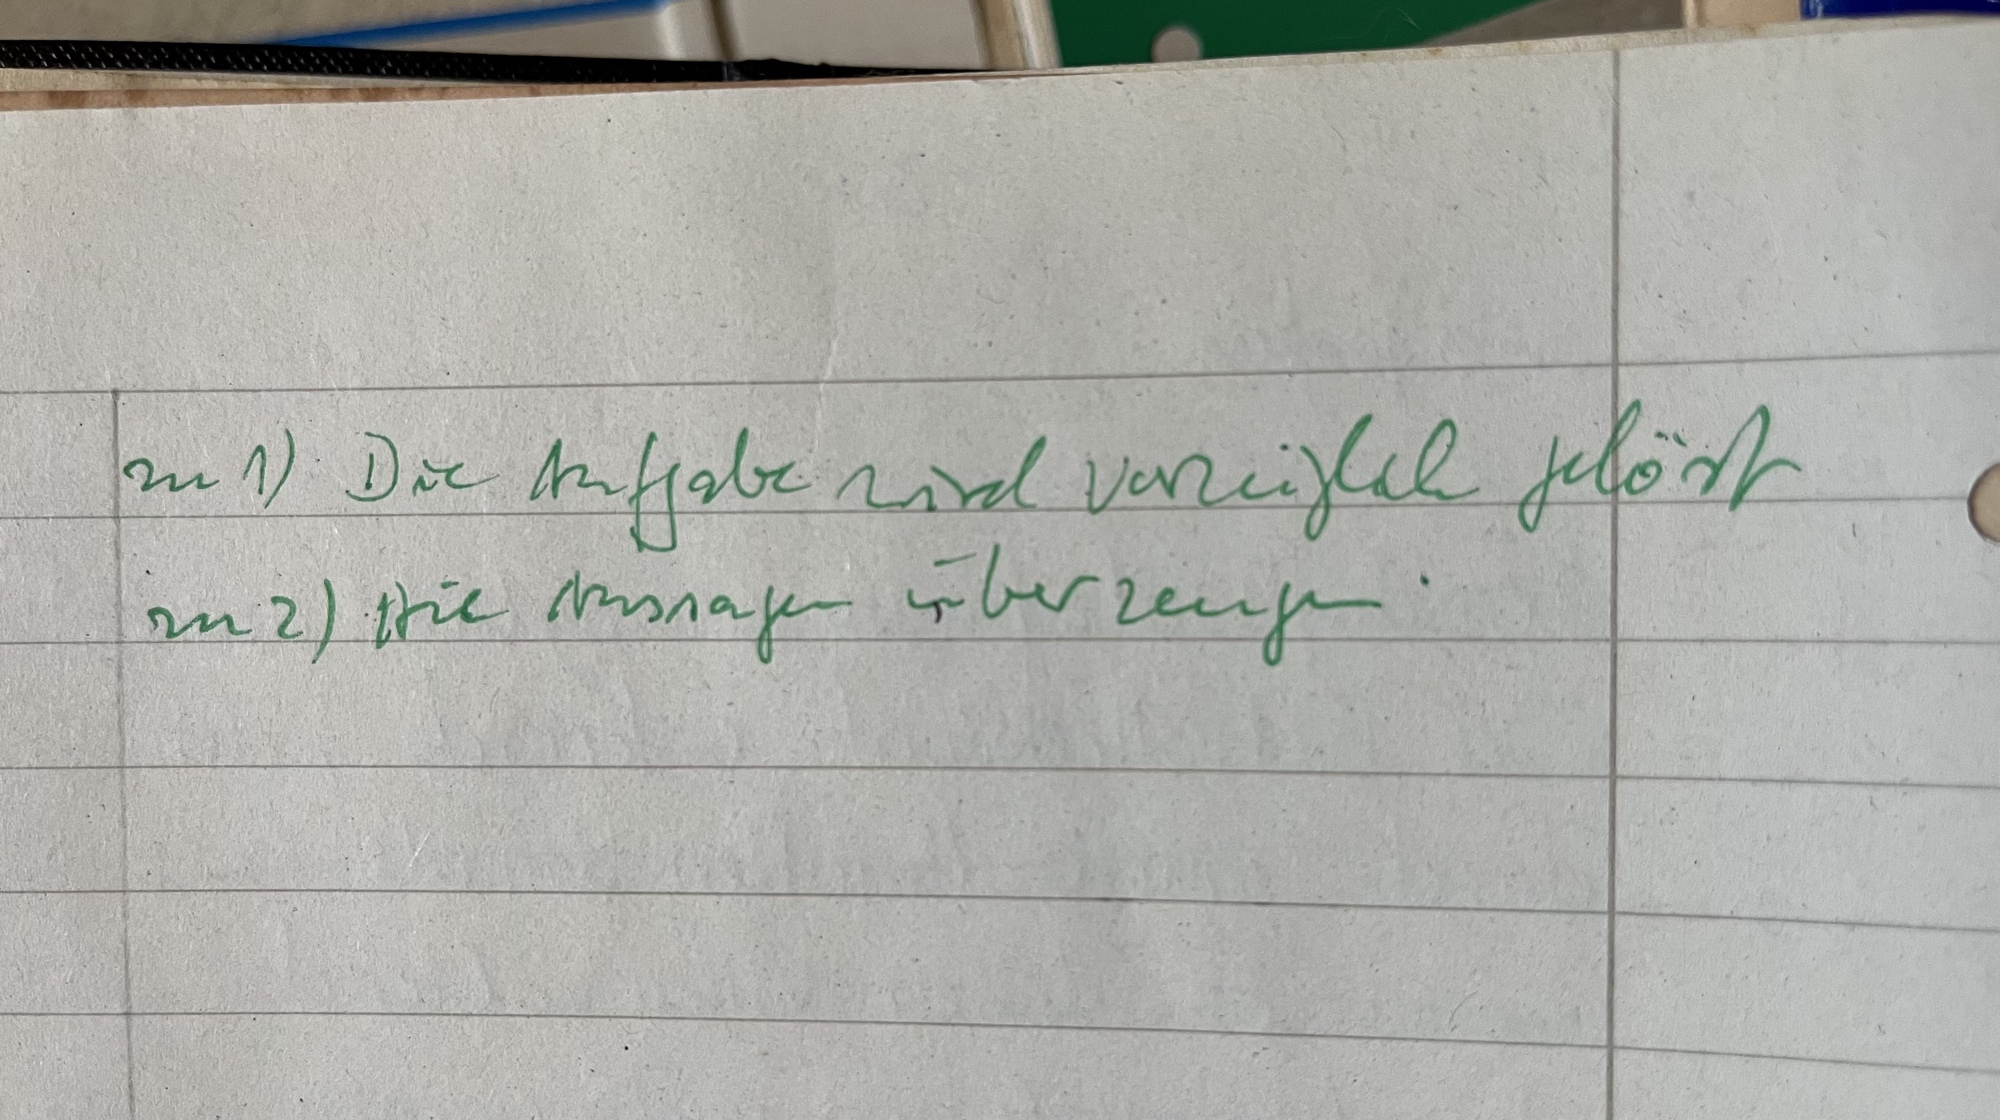 zu 1) Die Aufgabe wird vorzüglich gelöst
zu 2) Die Aussagen überzeugen.